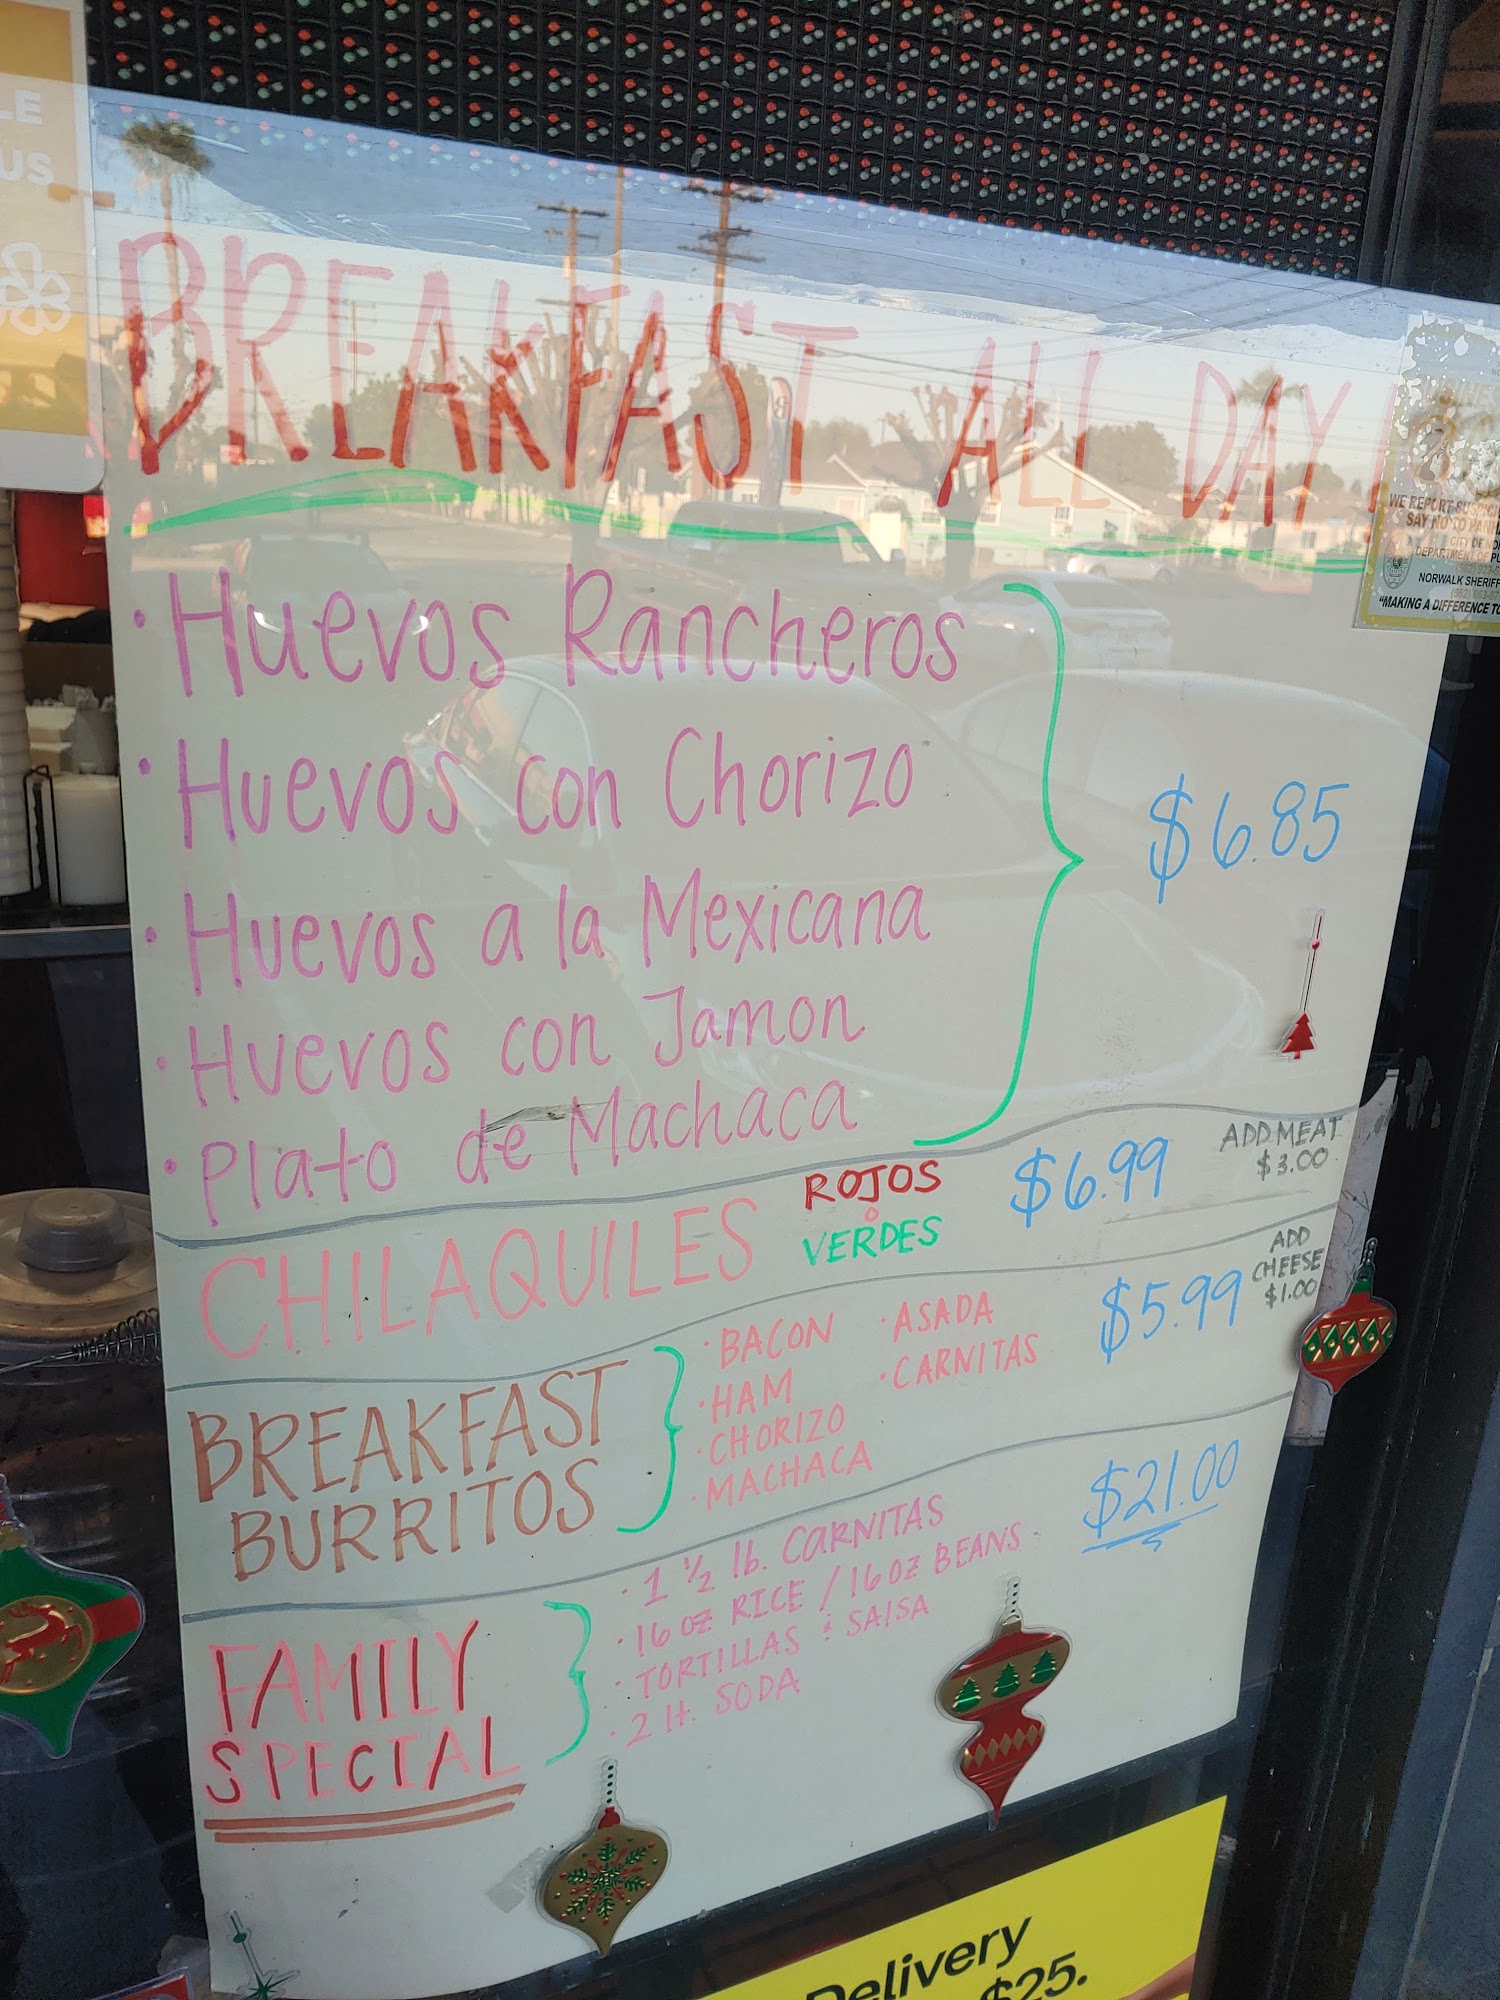 LE
US
BREAKFAST ALL DAY
WE REPORT
SAY NO TO
CITY OF
DEPARTMENT OF
NORWALK SHERIFF
"MAKING A DIFFERENCE
• Huevos Rancheros
• Huevos con Chorizo
• Huevos a la Mexicana
• Huevos con Jamon
• Plato de Machaca
$6.85
CHILAQUILES ROJOS
o
VERDES
$6.99
ADD MEAT
$3.00
BREAKFAST
BURRITOS
• BACON
• HAM
• CHORIZO
• MACHACA
• ASADA
• CARNITAS
$5.99
ADD
CHEESE
$1.00
FAMILY
SPECIAL
• 1 1/2 lb. CARNITAS
• 16 oz RICE / 16 oz BEANS
• TORTILLAS & SALSA
• 2 lt. SODA
$21.00
Delivery
$25.